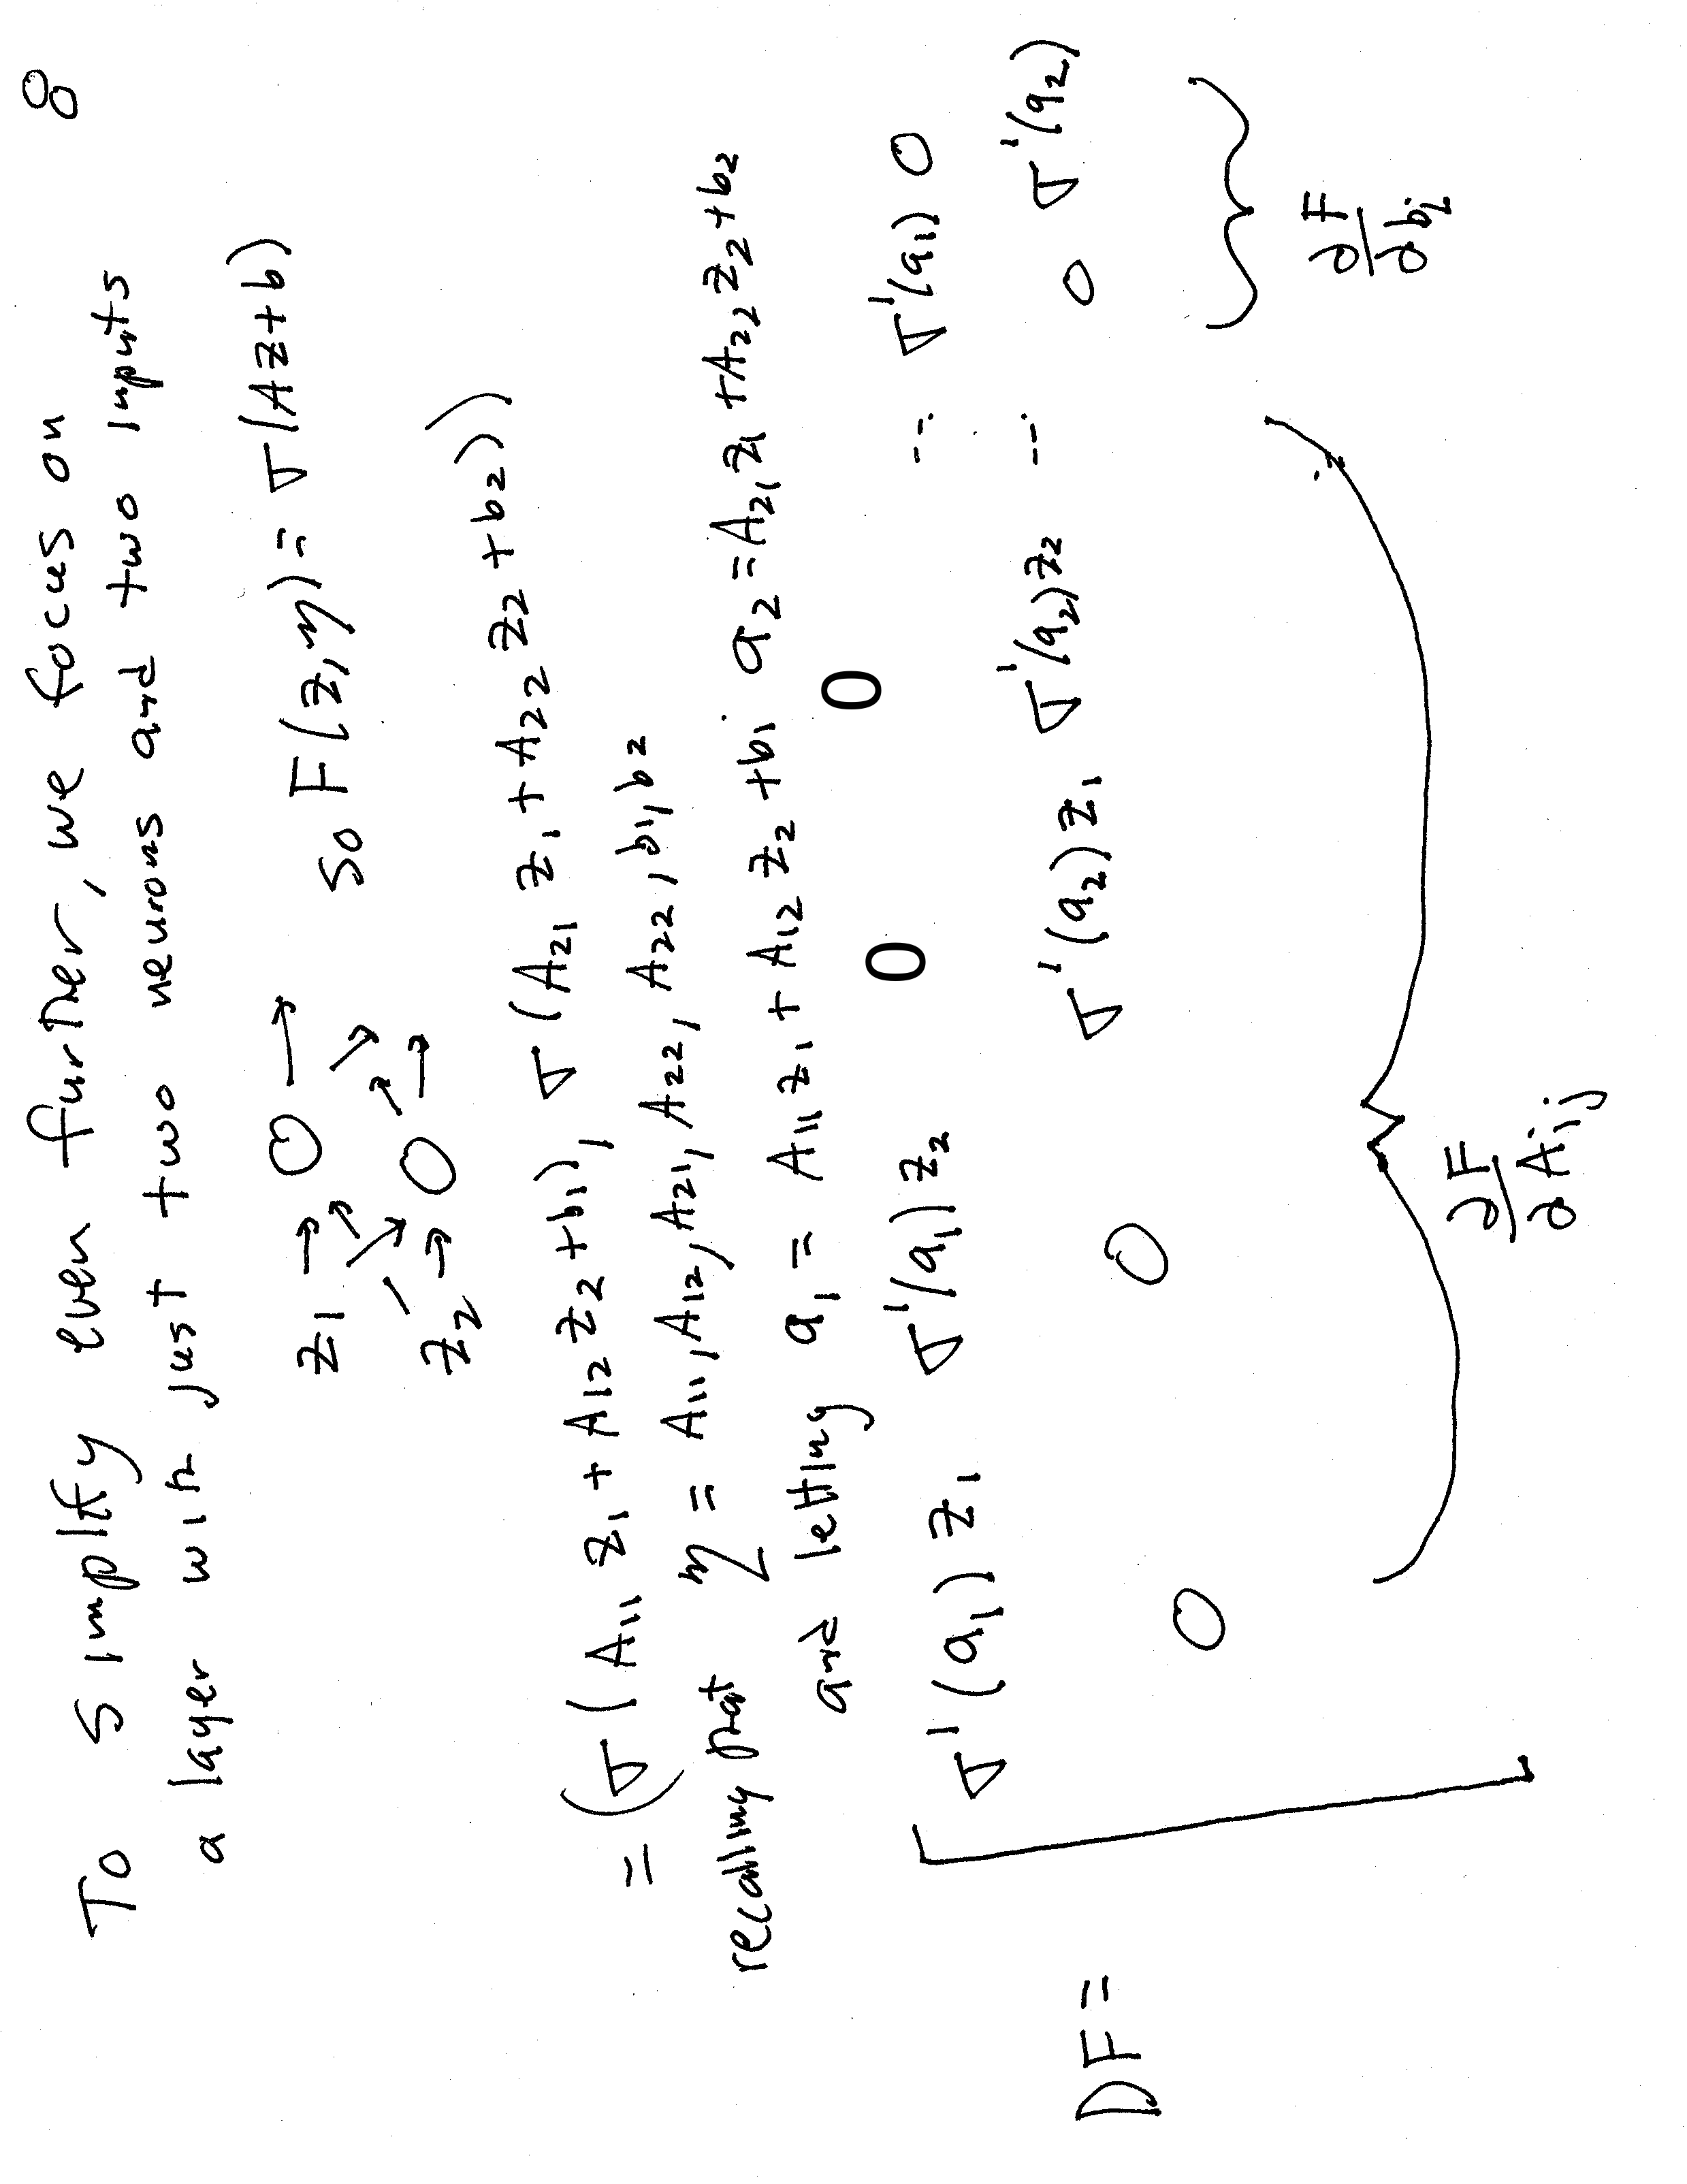 8
To simplify even further, we focus on
a layer with just two neurons and two inputs
z₁ → O → so F(z,η) = σ(Az+b)
z₂ → O →
= (σ(A₁₁ z₁ + A₁₂ z₂ + b₁), σ(A₂₁ z₁ + A₂₂ z₂ + b₂))
recalling that η = A₁₁, A₁₂, A₂₁, A₂₂, A₂₂, b₁, b₂
and letting a₁ = A₁₁ z₁ + A₁₂ z₂ + b₁ a₂ = A₂₁ z₁ + A₂₂ z₂ + b₂
σ'(a₁) z₁ σ'(a₁) z₂ 0 0 ... σ'(a₁) 0
DF = [ 0 0 σ'(a₂) z₁ σ'(a₂) z₂ ... 0 σ'(a₂)
∂F/∂Aᵢⱼ ∂F/∂bᵢ